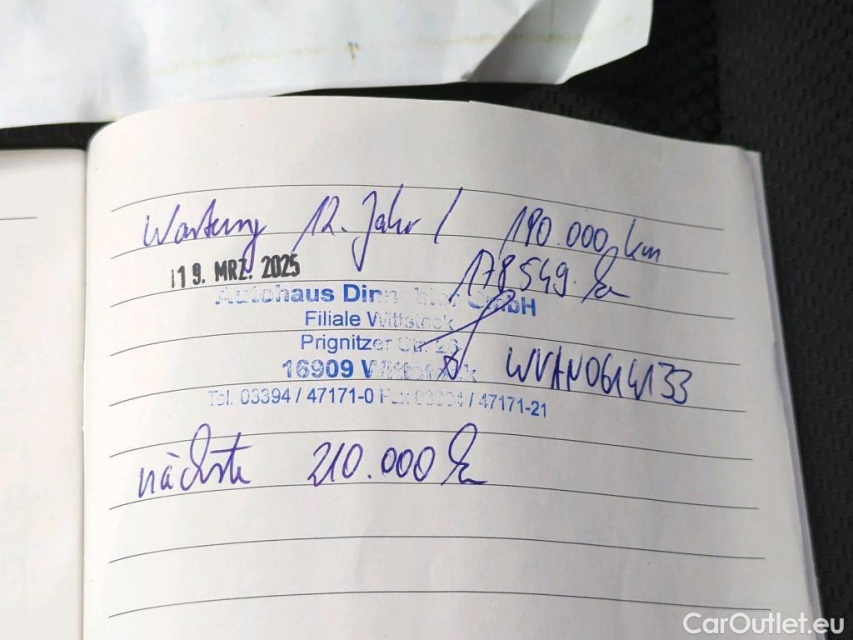 Wartung 12. Jahr / 190.000 km
19. MRZ. 2025
178549 km
Autohaus GmbH
Filiale Wittstock
Prignitzer Str.
16909 Wittstock
Tel. 03394 / 47171-0 Fax 03394 / 47171-21
nächste 210.000 km
CarOutlet.eu